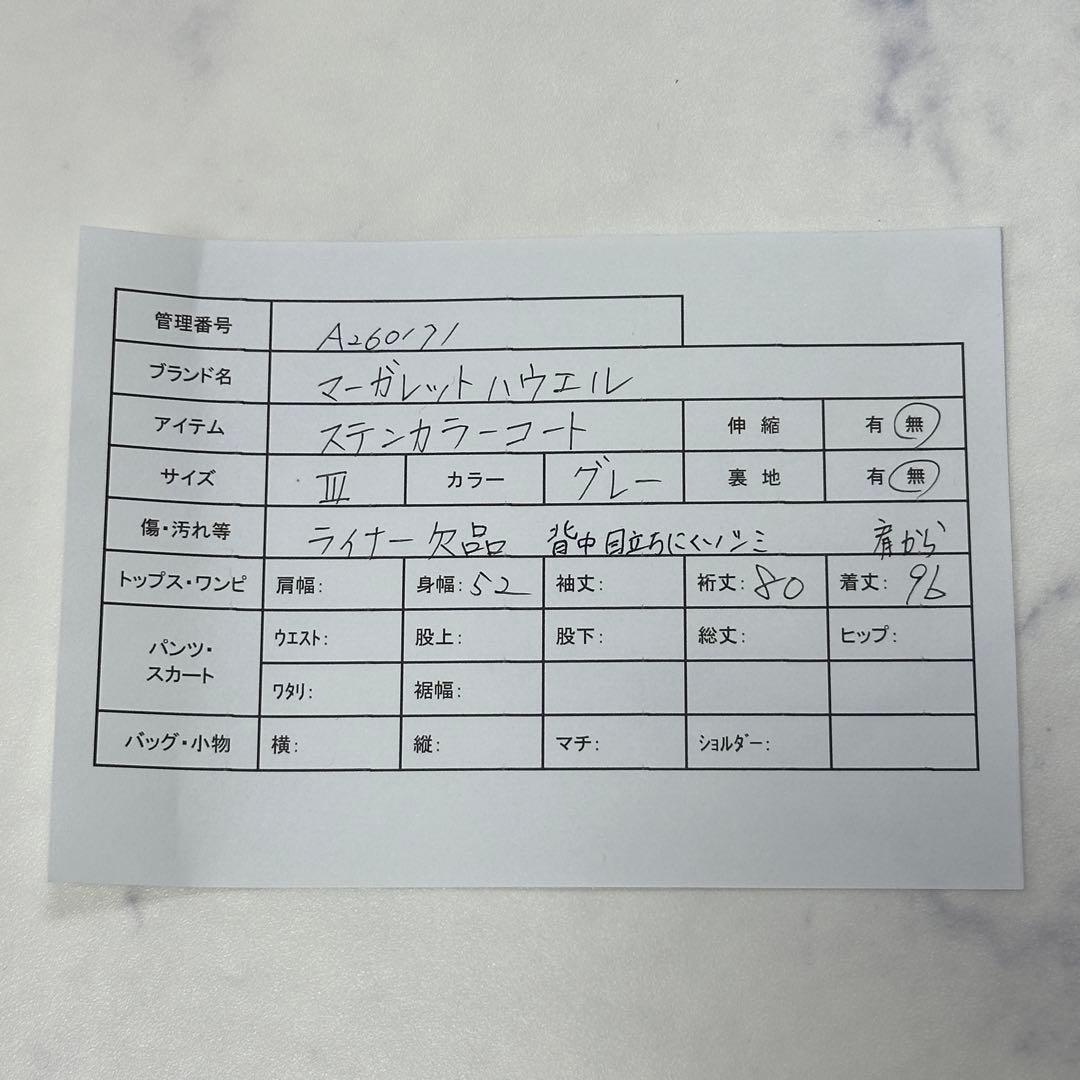 管理番号 A260171
ブランド名 マーガレットハウエル
アイテム ステンカラーコート 伸縮 有 無
サイズ Ⅲ カラー グレー 裏地 有 無
傷・汚れ等 ライナー欠品 背中目立ちにくいシミ 肩から
トップス・ワンピ 肩幅: 身幅: 52 袖丈: 裄丈: 80 着丈: 96
パンツ・スカート ウエスト: 股上: 股下: 総丈: ヒップ:
ワタリ: 裾幅:
バッグ・小物 横: 縦: マチ: ショルダー: